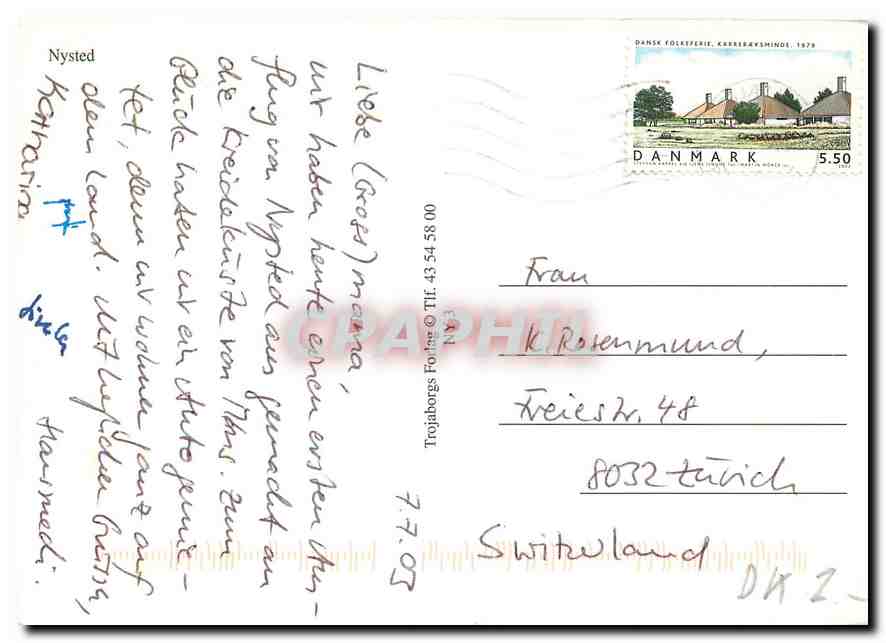 Nysted
7.7.05
Liebe (Gross)mama,
wir haben heute einen ersten Aus-
flug von Nysted aus gemacht an
die Kreideküste von Møns. Zum
Glück haben wir ein Auto gemie-
tet, denn wir wohnen ganz auf
dem Land. Mit herzlichen Grüssen,
Katharina
Trojaborgs Forlag © Tlf. 43 54 58 00
NY 3
DANSK FOLKEFERIE, KARREBÆKSMINDE, 1979
DANMARK 5.50
Frau
K. Rosenmund,
Freiestr. 48
8032 Zürich
Switzerland
DK 2.-
CPAPHIL